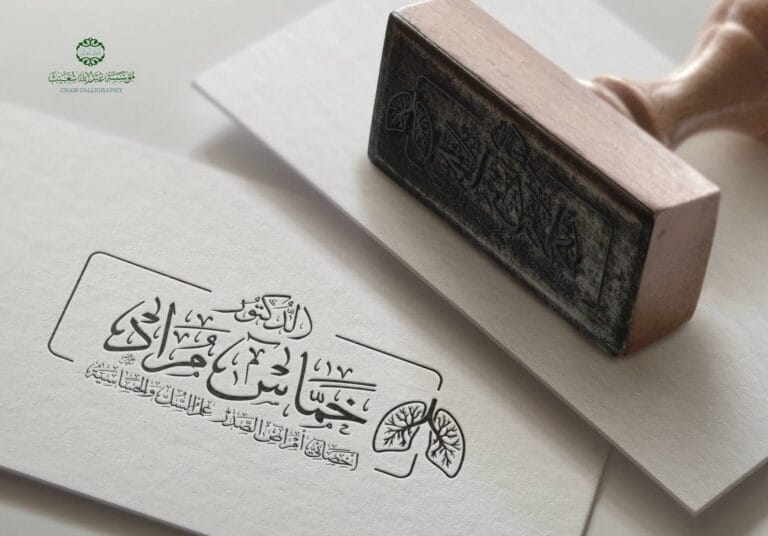 مؤسسة عبد الله شعيب
CHAIB CALLIGRAPHY
الدكتور
خماس مراد
اخصائي أمراض الصدر علم السل والحساسية